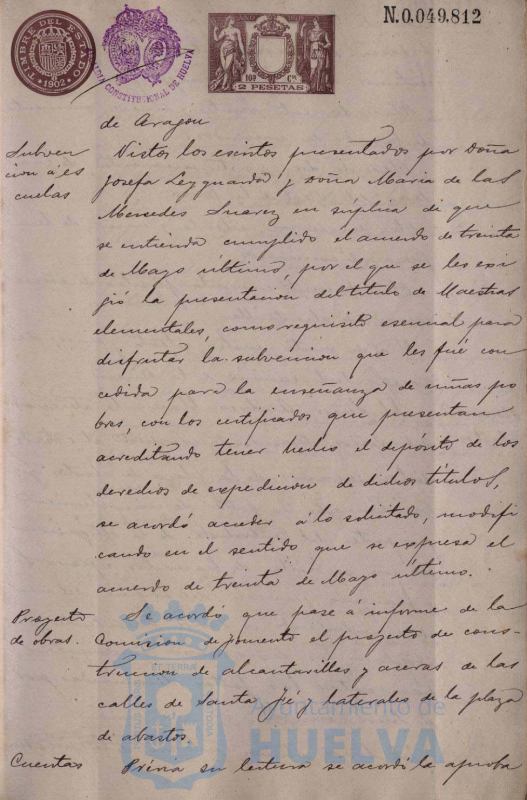 N.0.049.812
TIMBRE DEL ESTADO
1902
CONSTITUCIONAL DE HUELVA
10ª Cª
2 PESETAS
de Aragon
Subven
cion á es
cuelas
Vistos los escritos presentados por Doña
Josefa Leyguarda y Doña Maria de las
Mercedes Suarez en súplica de que
se entienda cumplido el acuerdo de treinta
de Mayo último, por el que se les exi
gió la presentacion del título de Maestras
elementales, como requisito esencial para
disfrutar la subvencion que les fué con
cedida para la enseñanza de niñas po
bres, con los certificados que presentan
acreditando tener hecho el depósito de los
derechos de expedicion de dichos títulos,
se acordó acceder á lo solicitado, modifi
cando en el sentido que se expresa el
acuerdo de treinta de Mayo último.
Proyecto
de obras.
Se acordó que pase á informe de la
Comision de fomento el proyecto de cons-
truccion de alcantarillas y aceras de las
calles de Santa Fé y laterales de la plaza
de abastos.
Cuentas
Prévia su lectura se acordó la aproba
Ayuntamiento de
HUELVA